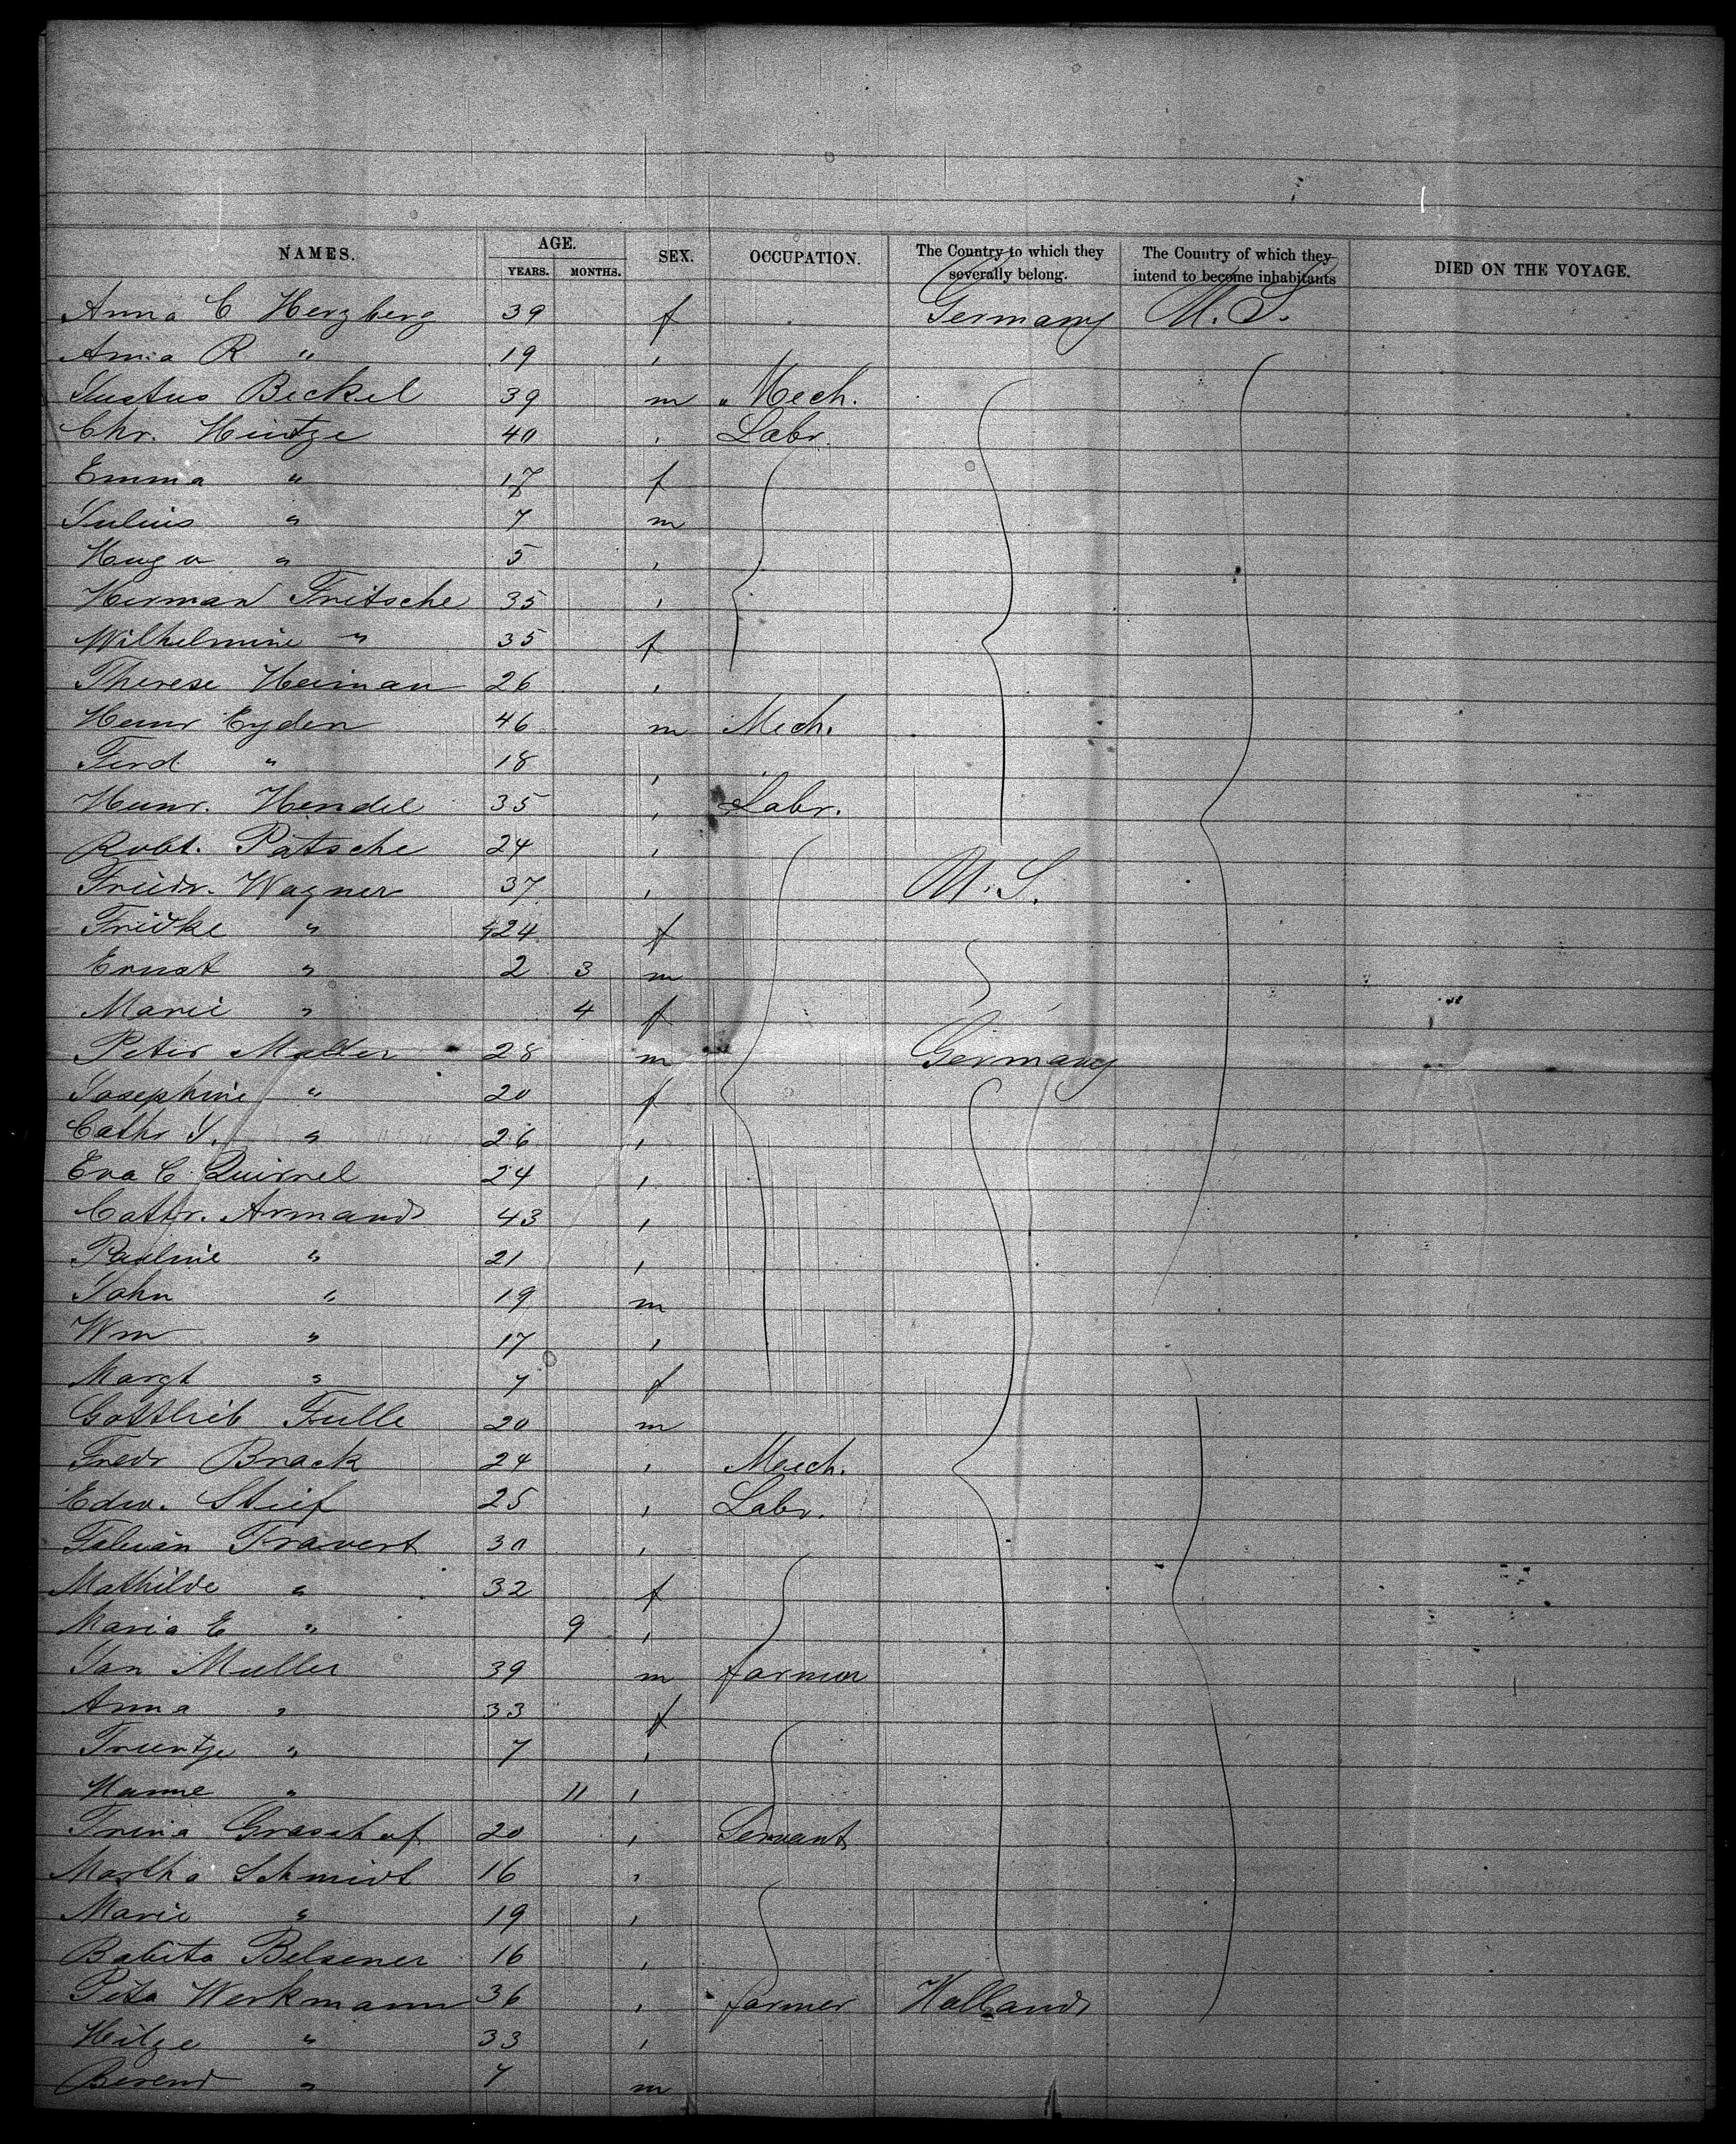 NAMES. AGE. SEX. OCCUPATION. The Country to which they severally belong. The Country of which they intend to become inhabitants DIED ON THE VOYAGE.
YEARS. MONTHS.
Anna C Herzberg 39 f Germany U. S.
Anna R " 19 ,
Justus Beckel 39 m " Mech.
Chr. Heintze 40 , Labr.
Emma " 17 f
Julius " 7 m
Hugo " 5 ,
Herman Fritsche 35 ,
Wilhelmine " 35 f
Therese Heiman 26 ,
Heinr Eyden 46 m Mech.
Ferd " 18 ,
Heinr. Hendel 35 , Labr.
Robt. Patsche 24 ,
Friedr. Wagner 37 , U. S.
Fridke " 24 f
Ernst " 2 3 m
Marie " 4 f
Peter Muller 28 m Germany
Josephine " 20 f
Cathr J. " 26 ,
Eva C Quirnel 24 ,
Cathr. Armand 43 ,
Pauline " 21 ,
John " 19 m
Wm " 17 ,
Margt " 7 f
Gottlieb Fulle 20 m
Fredr Brack 24 , Mech.
Edw. Stief 25 , Labr.
Fabian Travert 30 ,
Mathilde " 32 f
Maria E " 9 ,
Jan Muller 39 m farmer
Anna " 33 f
Trientje " 7 ,
Hanne " 11 ,
Trina Grashof 20 , Servant
Martha Schmidt 16 ,
Marie " 19 ,
Babita Belsener 16 ,
Peter Werkmann 36 , farmer Holland
Hilge " 33 ,
Berend " 7 m